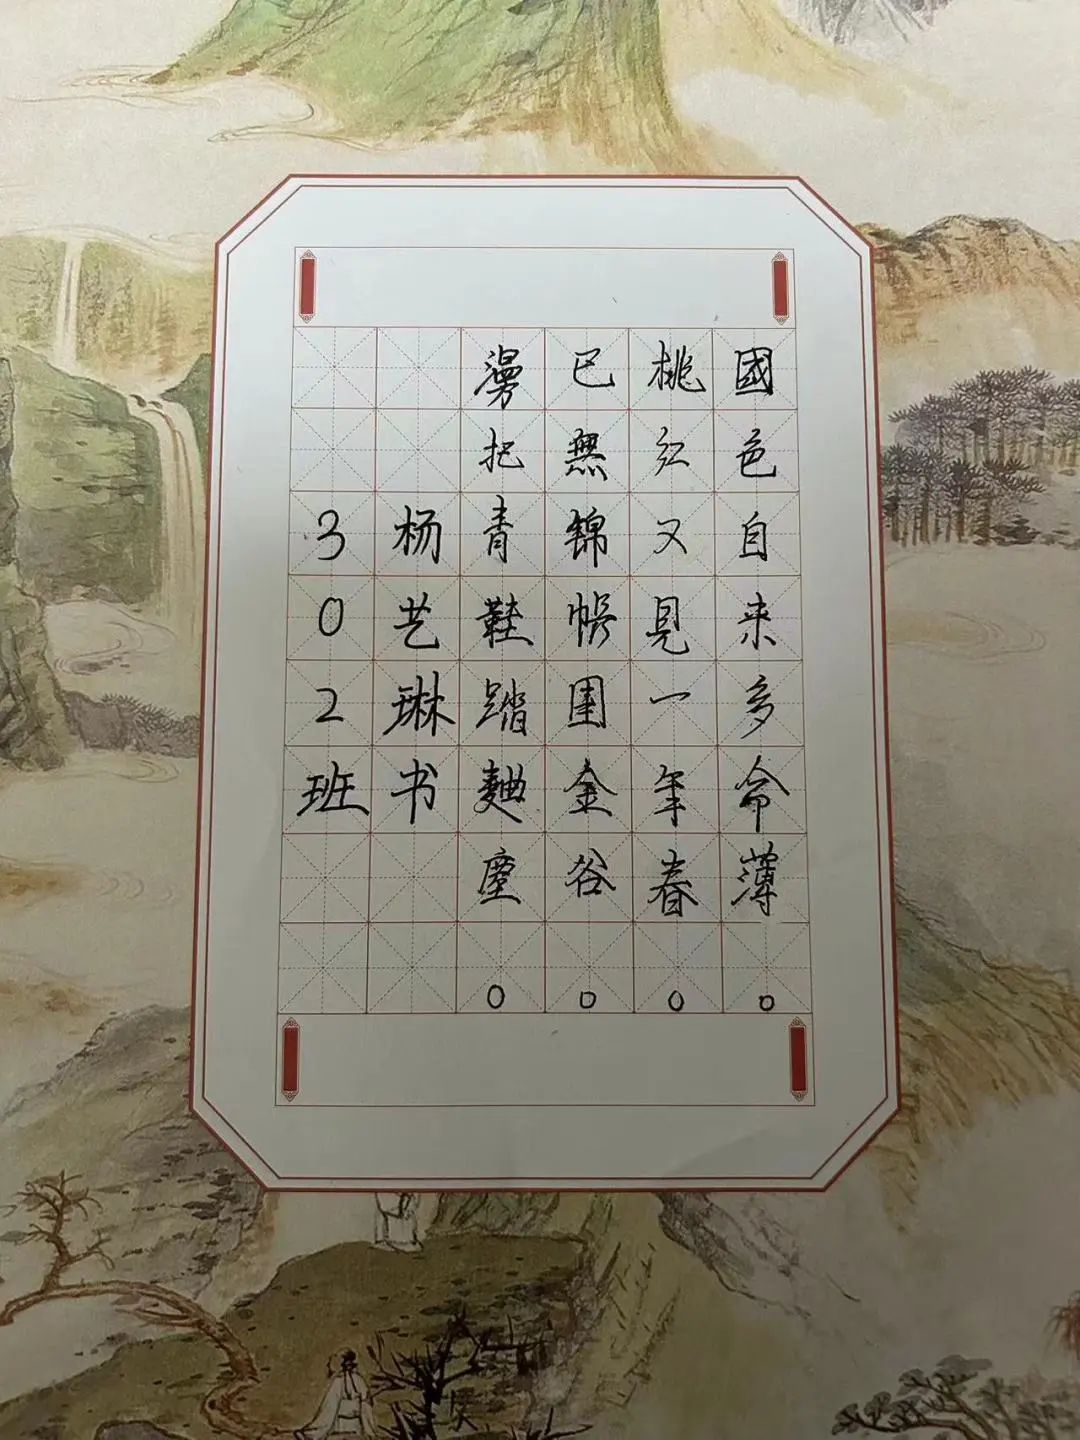 國色自来多命薄。
桃红又見一年春。
已無锦帳圍金谷。
漫把青鞋踏麴塵。
杨艺琳书
302班